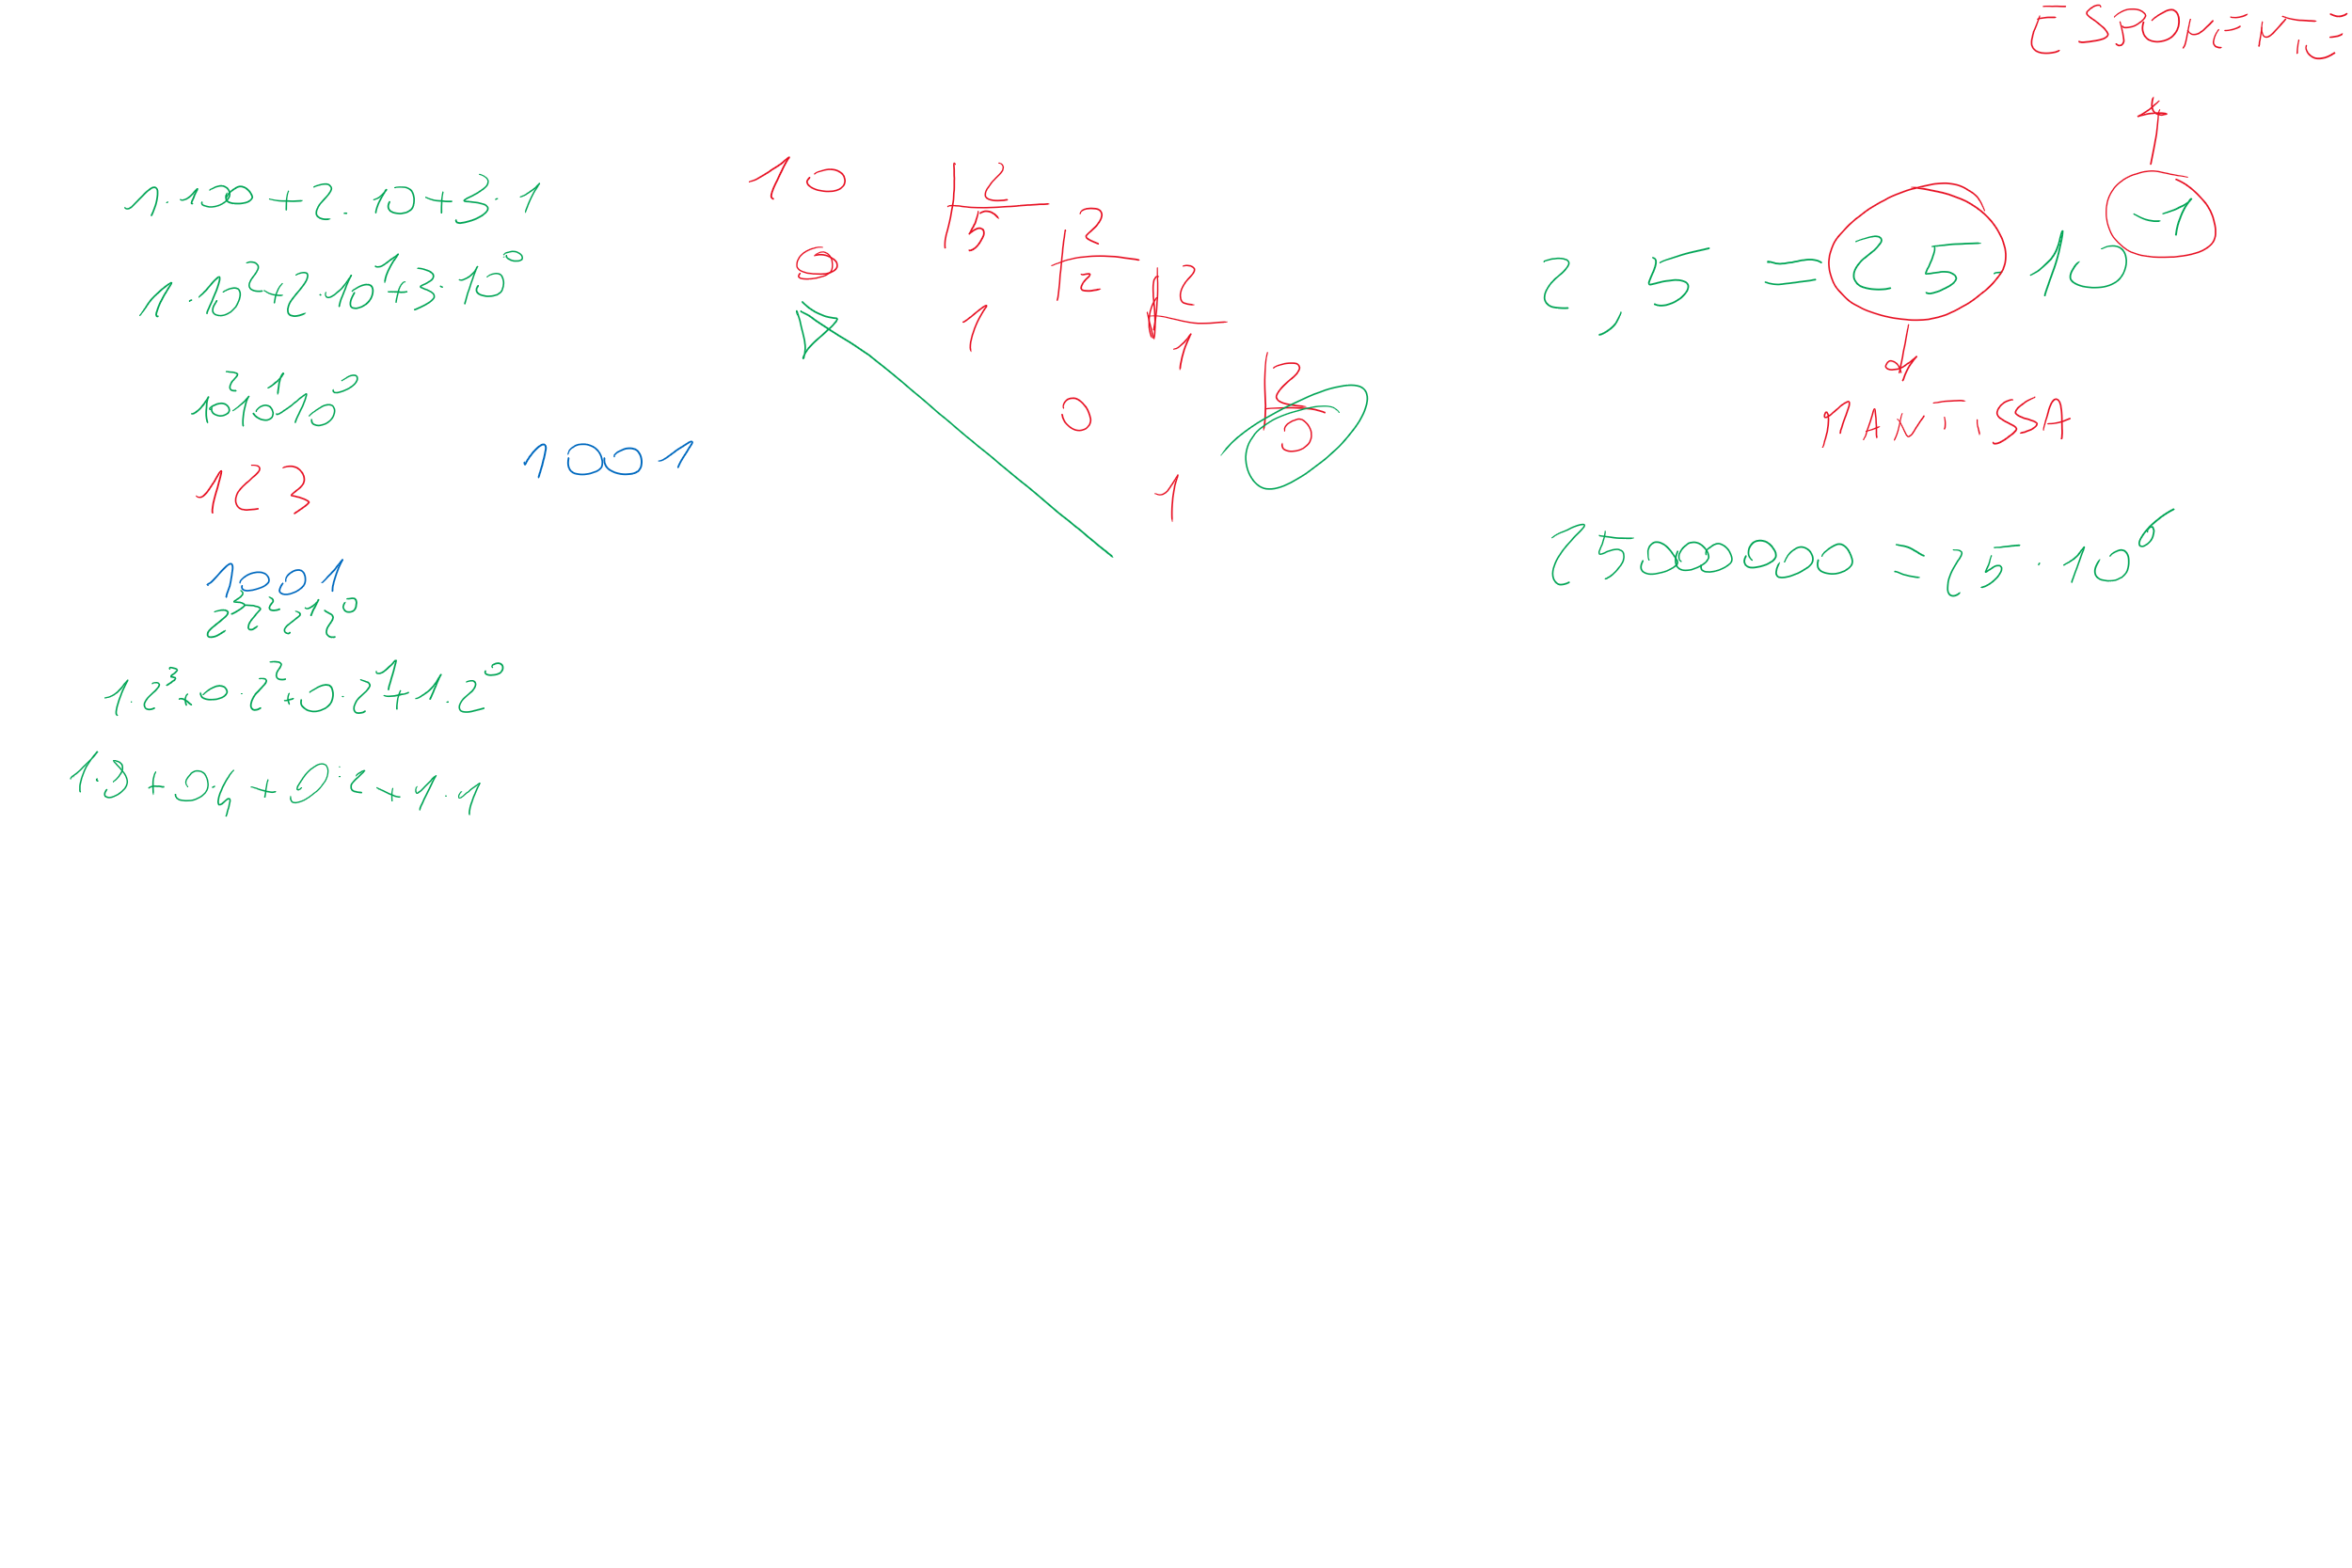 1·100+2·10+3·1
1·10²+2·10¹+3·10⁰
10²10¹10⁰
123
1001
2³2²2¹2⁰
1·2³+0·2²+0·2¹+1·2⁰
1·8+0·4+0·2+1·1
1001
10 2
0 5 2
1 2 2
1 2
0 0
1
ESPONENTE
2,5 = 25·10⁻¹
MANTISSA
25000000 = 25·10⁶